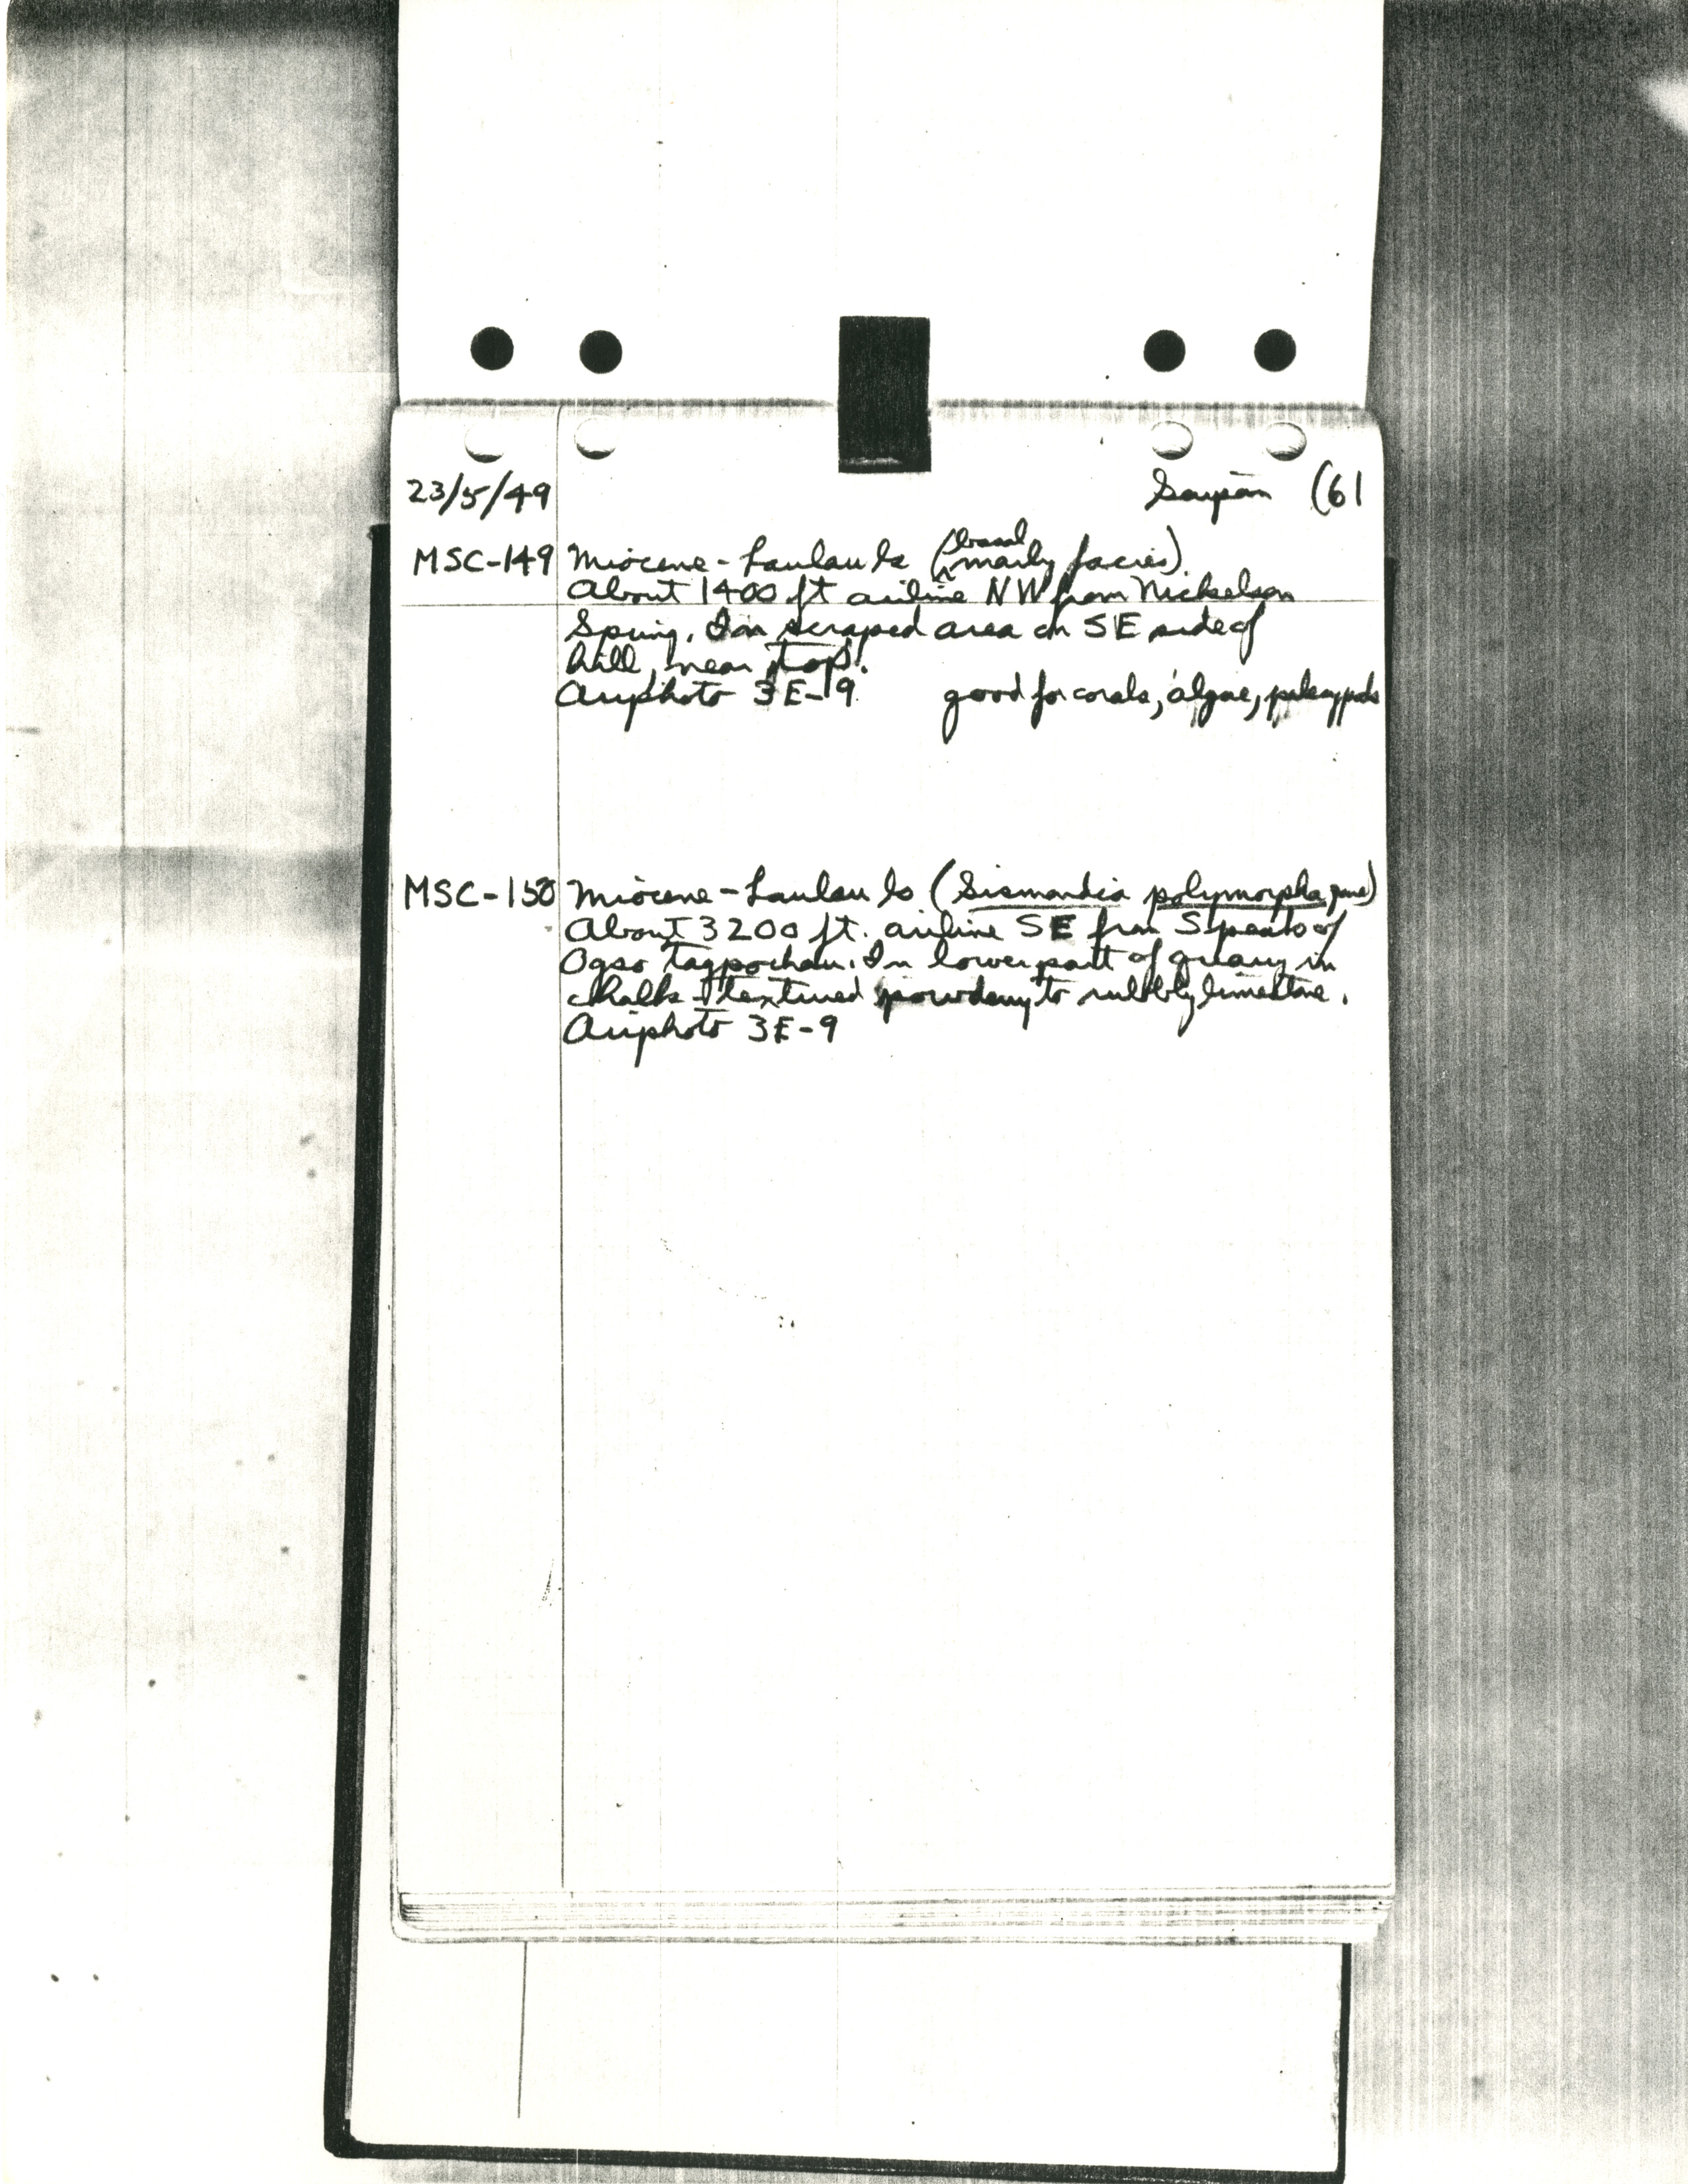 23/5/49 Saipan (61
MSC-149 Miocene - Laulau ls (basal marly facies)
About 1400 ft airline NW from Nickelson
Spring. In scraped area on SE side of
hill, near top.
Airphoto 3E-9. good for corals, algae, pelecypods
MSC-150 Miocene - Laulau ls (Sismondia polymorpha zone)
About 3200 ft. airline SE from S peak of
Ogso Tagpochau. In lower part of quarry in
chalk-textured powdery to rubbly limestone.
Airphoto 3E-9